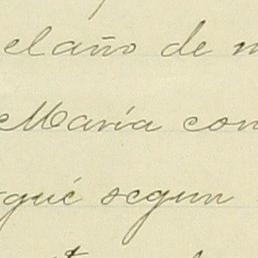 el año de
María con
gué segun